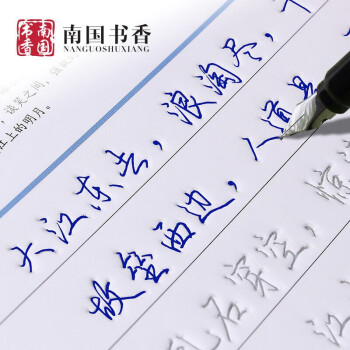 南国书香
南国书香
NANGUOSHUXIANG
谈笑之间，强
江上的明月。
大江东去，浪淘尽，千
故垒西边，人道是
乱石穿空，惊
江